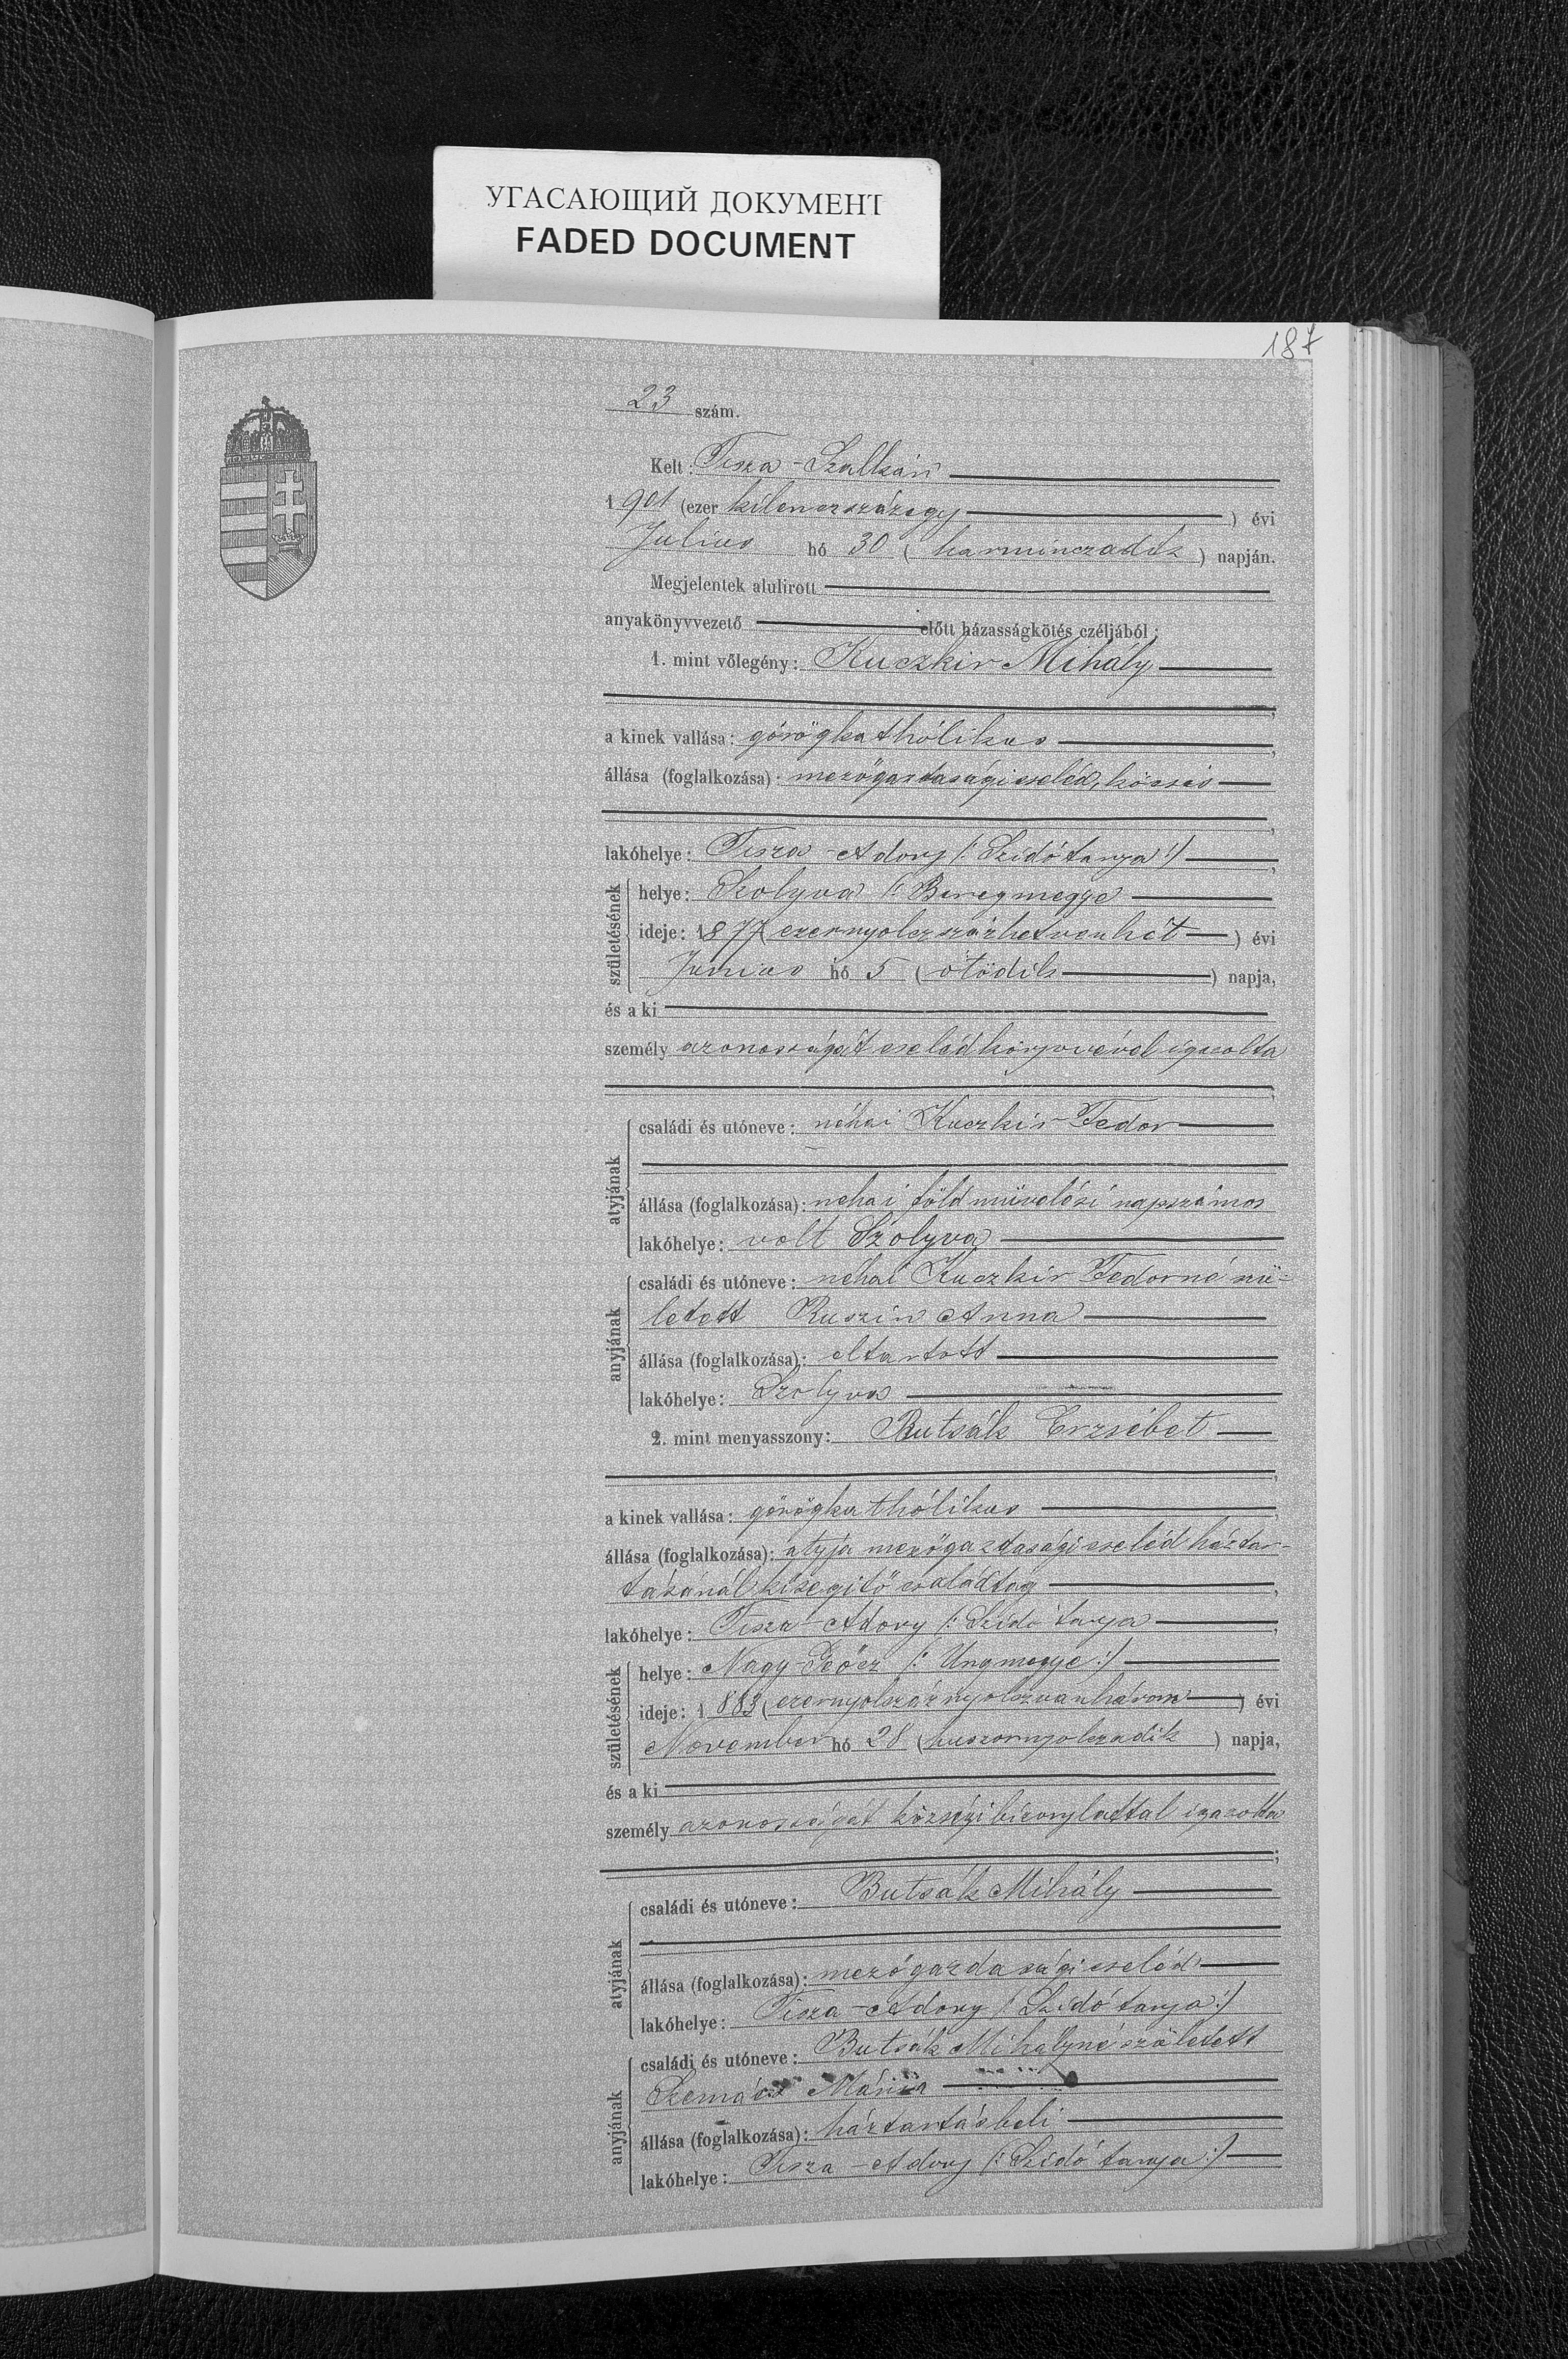 УГАСАЮЩИЙ ДОКУМЕНТ
FADED DOCUMENT
187
23 szám.
Kelt: Tisza-Szalkán
1901 (ezer kilenczszázegy) évi
Julius hó 30 (harminczadik) napján.
Megjelentek alulirott
anyakönyvvezető előtt házasságkötés czéljából:
1. mint vőlegény: Kuczkir Mihály
a kinek vallása: görögkathólikus
állása (foglalkozása): mezőgazdasági cseléd, kocsis
lakóhelye: Tisza-Adony (: Szidó tanya :)
születésének
helye: Szolyva (: Beregmegye
ideje: 1877 (ezernyolczszázhetvenhét) évi
Junius hó 5 (ötödik) napja,
és a ki
személy azonosságát cselédkönyvével igazolta
atyjának
családi és utóneve: néhai Kuczkir Fedor
állása (foglalkozása): néhai földmüvelési napszámos
lakóhelye: volt Szolyva
anyjának
családi és utóneve: néhai Kuczkir Fedorné szü-
letett Ruszin Anna
állása (foglalkozása): eltartott
lakóhelye: Szolyva
2. mint menyasszony: Butsák Erzsébet
a kinek vallása: görögkathólikus
állása (foglalkozása): atyja mezőgazdasági cseléd háztar-
tásánál kisegitő családtag
lakóhelye: Tisza-Adony (: Szidó tanya
születésének
helye: Nagy-Geőcz (: Ungmegye :)
ideje: 1883 (ezernyolszáznyolszvanhárom) évi
November hó 28 (huszonnyolczadik) napja,
és a ki
személy azonosságát községi bizonylattal igazolta
atyjának
családi és utóneve: Butsák Mihály
állása (foglalkozása): mezőgazdasági cseléd
lakóhelye: Tisza-Adony (: Szidó tanya :)
anyjának
családi és utóneve: Butsák Mihályné született
Mária
állása (foglalkozása): háztartásbeli
lakóhelye: Tisza-Adony (: Szidó tanya :)